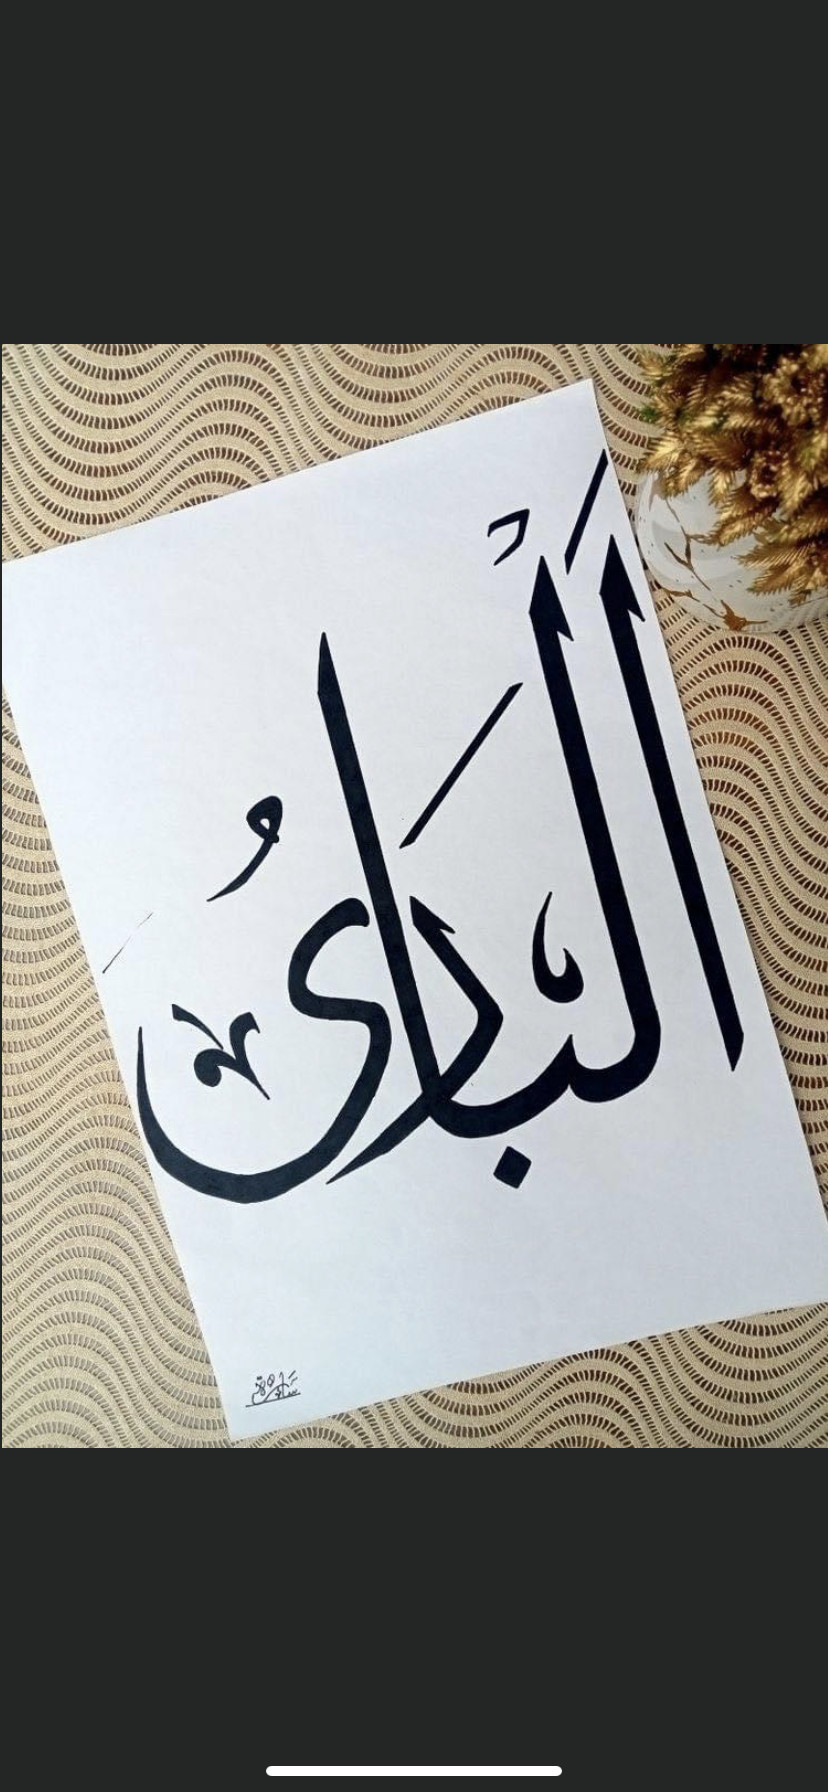 اَلْبَارىُ